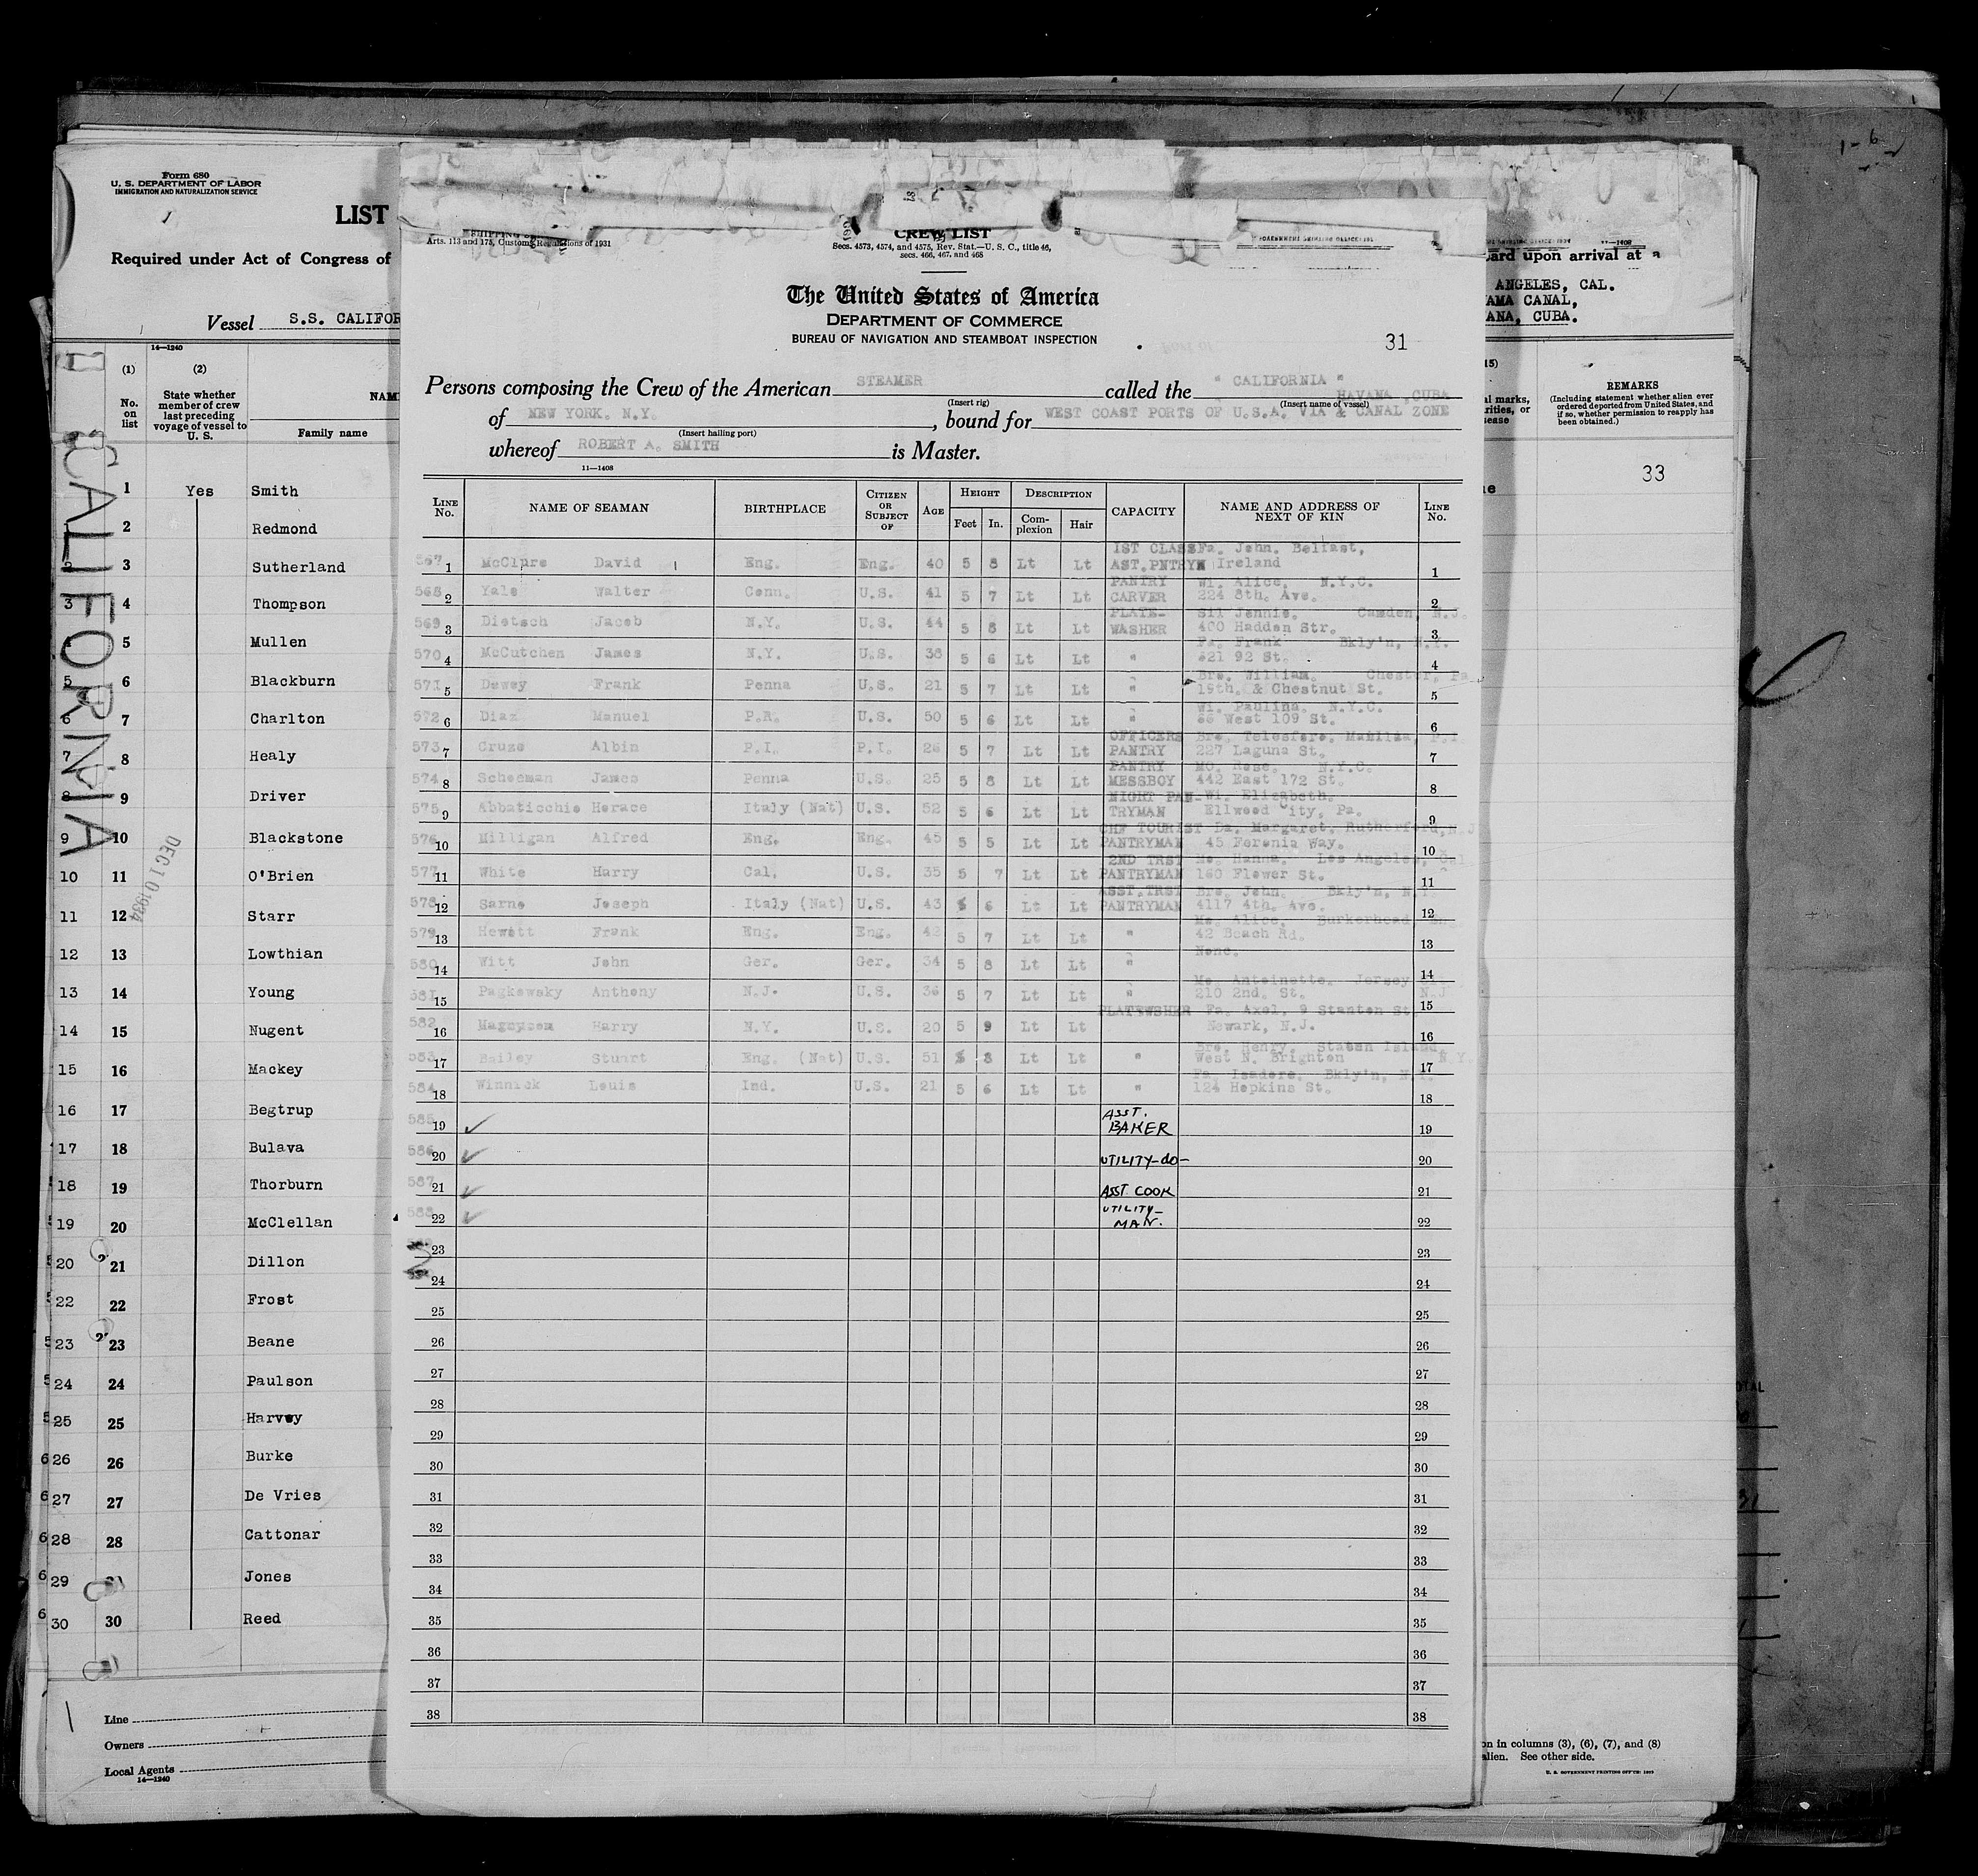 Form 680
U. S. DEPARTMENT OF LABOR
IMMIGRATION AND NATURALIZATION SERVICE
LIST
Required under Act of Congress of
Vessel S.S. CALIFOR
14—1240
(1) (2)
No. on list
State whether member of crew last preceding voyage of vessel to U. S.
Family name
CALIFORNIA
DEC 10 1934
1 Yes Smith
2 Redmond
3 Sutherland
3 4 Thompson
5 Mullen
5 6 Blackburn
6 7 Charlton
7 8 Healy
8 9 Driver
9 10 Blackstone
10 11 O'Brien
11 12 Starr
12 13 Lowthian
13 14 Young
14 15 Nugent
15 16 Mackey
16 17 Begtrup
17 18 Bulava
18 19 Thorburn
19 20 McClellan
20 21 Dillon
22 22 Frost
23 23 Beane
24 24 Paulson
25 25 Harvey
26 26 Burke
27 27 De Vries
28 28 Cattonar
29 Jones
30 30 Reed
Line
Owners
Local Agents
14—1240
Arts. 113 and 175, Customs Regulations of 1931
CREW LIST
Secs. 4573, 4574, and 4575, Rev. Stat.—U. S. C., title 46,
secs. 466, 467, and 468
The United States of America
DEPARTMENT OF COMMERCE
BUREAU OF NAVIGATION AND STEAMBOAT INSPECTION
31
Persons composing the Crew of the American STEAMER called the " CALIFORNIA "
(Insert rig) (Insert name of vessel)
HAVANA, CUBA
of NEW YORK. N.Y. , bound for WEST COAST PORTS OF U.S.A. VIA & CANAL ZONE
(Insert hailing port)
whereof ROBERT A. SMITH is Master.
11—1408
LINE No. NAME OF SEAMAN BIRTHPLACE CITIZEN OR SUBJECT OF AGE HEIGHT Feet In. DESCRIPTION Complexion Hair CAPACITY NAME AND ADDRESS OF NEXT OF KIN LINE No.
567 1 McClure David Eng. Eng. 40 5 8 Lt Lt 1ST CLASS AST.PNTRYM Fa. John. Belfast, Ireland 1
568 2 Yale Walter Conn. U.S. 41 5 7 Lt Lt PANTRY CARVER Wi. Alice, N.Y.C. 224 8th. Ave. 2
569 3 Dietsch Jacob N.Y. U.S. 44 5 8 Lt Lt PLATE-WASHER Jennie. Camden, N.J. 400 Hadden Str. 3
570 4 McCutchen James N.Y. U.S. 38 5 6 Lt Lt " Fa. Frank Bkly'n, N.Y. 621 92 St. 4
571 5 Dewey Frank Penna U.S. 21 5 7 Lt Lt " Bro. William. Chester, Pa 19th. & Chestnut St. 5
572 6 Diaz Manuel P.R. U.S. 50 5 6 Lt Lt " Wi. Paulina. N.Y.C. West 109 St. 6
573 7 Cruze Albin P.I. P.I. 26 5 7 Lt Lt OFFICERS PANTRY Bro. Telesfore, Manilla, P.I 227 Laguna St. 7
574 8 Scheeman James Penna U.S. 25 5 8 Lt Lt PANTRY MESSBOY Mo. Rose. N.Y.C. 442 East 172 St. 8
575 9 Abbaticchie Horace Italy (Nat) U.S. 52 5 6 Lt Lt NIGHT PAN-TRYMAN Wi. Elizabeth. Ellwood City, Pa. 9
576 10 Milligan Alfred Eng. Eng. 45 5 5 Lt Lt CHF TOURIST PANTRYMAN Da. Margaret, Rutherford, N.J 45 Feronia Way. 10
577 11 White Harry Cal. U.S. 35 5 7 Lt Lt 2ND TRST PANTRYMAN Mo. Hanna. Los Angeles, Cal. 160 Flower St. 11
578 12 Sarno Joseph Italy (Nat) U.S. 43 5 6 Lt Lt ASST.TRST PANTRYMAN Bro. John. Bkly'n, N.Y. 4117 4th. Ave. 12
579 13 Hewett Frank Eng. Eng. 42 5 7 Lt Lt " Mo. Alice. Burkerhead, 42 Beach Rd. 13
580 14 Witt John Ger. Ger. 34 5 8 Lt Lt " None. 14
581 15 Pagkowsky Anthony N.J. U.S. 36 5 7 Lt Lt " Mo. Antoinette. Jersey 210 2nd. St. N.J 15
582 16 Magnyson Harry N.Y. U.S. 20 5 9 Lt Lt PLATEWSHER Fa. Axel, 9 Stanton St. Newark, N.J. 16
583 17 Bailey Stuart Eng. (Nat) U.S. 51 5 8 Lt Lt " Bro. Henry. Staten Island, West N. Brighton N.Y. 17
584 18 Winnick Louis Ind. U.S. 21 5 6 Lt Lt " Fa. Isadore. Bkly'n, N.Y. 124 Hopkins St. 18
585 19 ✓ ASST. BAKER 19
586 20 ✓ UTILITY-do- 20
587 21 ✓ ASST COOK 21
588 22 ✓ UTILITY-MAN. 22
23 23
24 24
25 25
26 26
27 27
28 28
29 29
30 30
31 31
32 32
33 33
34 34
35 35
36 36
37 37
38 38
ard upon arrival at a
ANGELES, CAL.
AMA CANAL,
ANA, CUBA.
REMARKS
(Including statement whether alien ever ordered deported from United States, and if so, whether permission to reapply has been obtained.)
33
on in columns (3), (6), (7), and (8)
alien. See other side.
U. S. GOVERNMENT PRINTING OFFICE: 1933